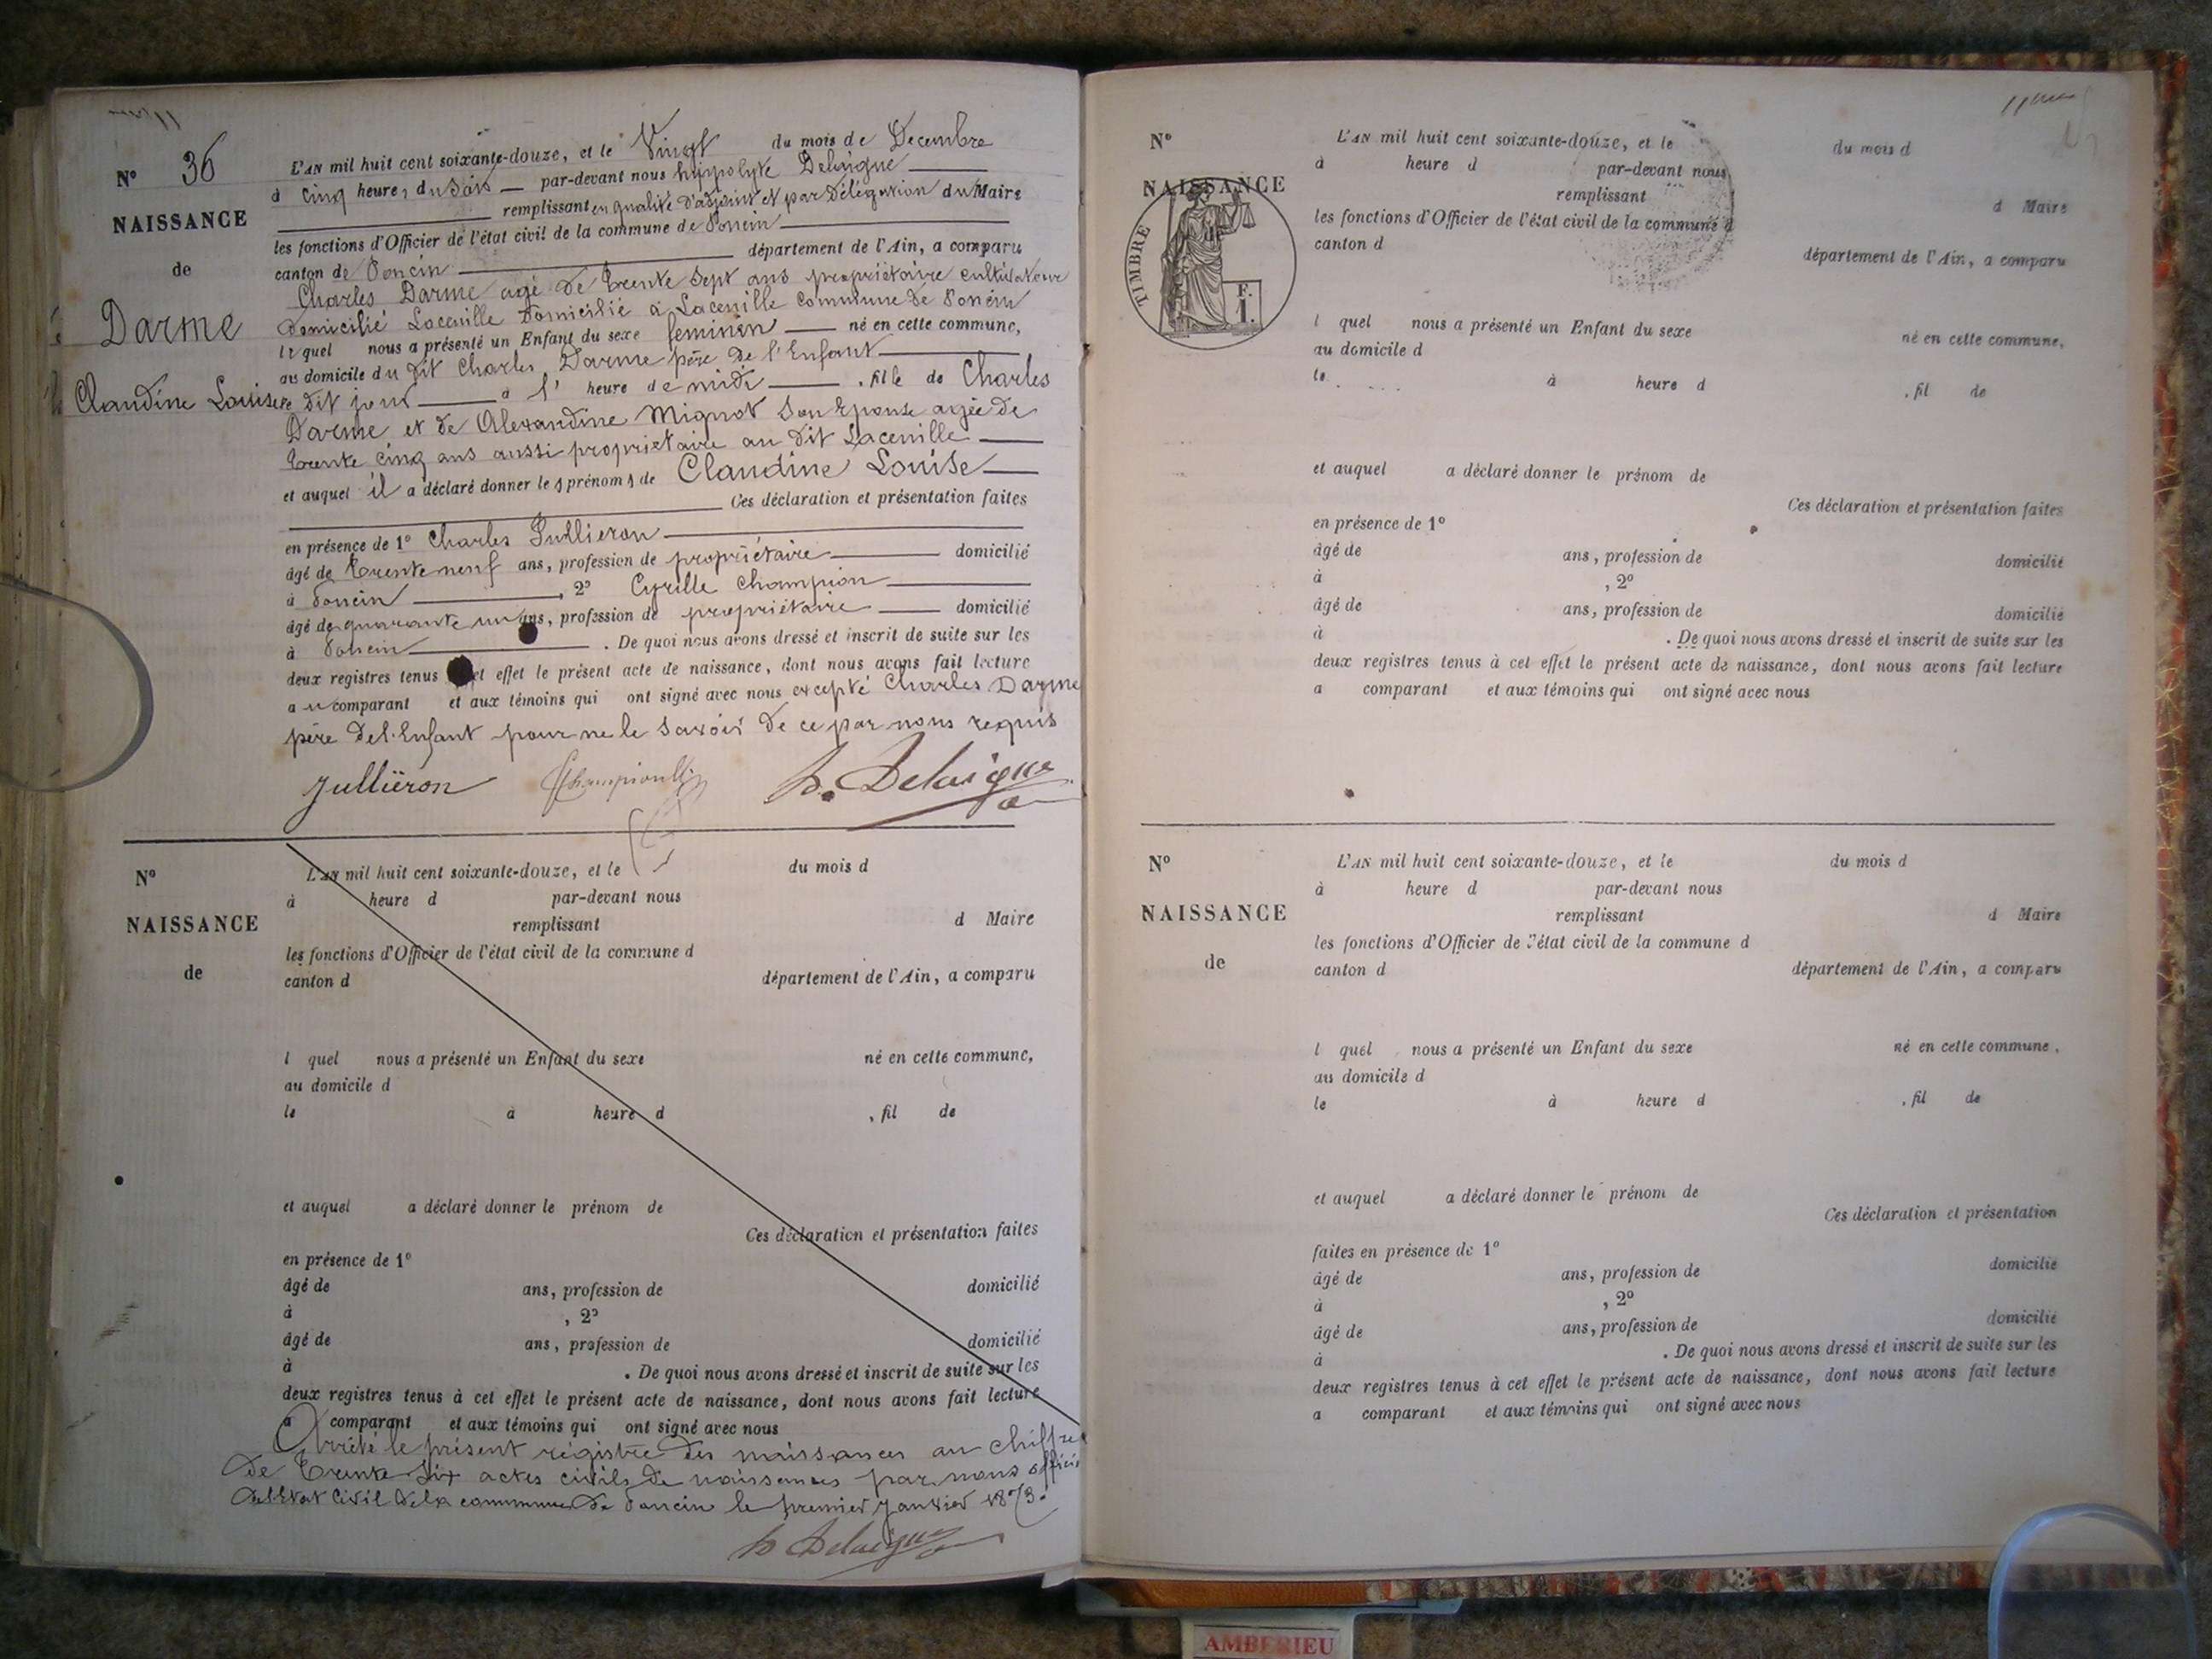 N° 36
NAISSANCE
de
Darme
Claudine Louise
L'AN mil huit cent soixante-douze, et le Vingt du mois de Decembre
à cinq heures du Soir par-devant nous hippolyte Delaigue
remplissant en qualité d'adjoint et par Délégation du Maire
les fonctions d'Officier de l'état civil de la commune de Poncin
canton de Poncin département de l'Ain, a comparu
Charles Darme agé de trente sept ans propriétaire cultivateur
domicilié Lacenille domicilié à Lacenille commune de Poncin
lequel nous a présenté un Enfant du sexe feminin né en cette commune,
au domicile du dit Charles Darme père de l'Enfant
le dit jour à l' heure de midi , fille de Charles
Darme et de Alexandine Mignot Son Epouse agée de
trente cinq ans aussi propriétaire au dit Lacenille
et auquel il a déclaré donner les prénoms de Claudine Louise
Ces déclaration et présentation faites
en présence de 1° Charles Jullieron
âgé de trente neuf ans, profession de propriétaire domicilié
à Poncin , 2° Cyrille Champion
âgé de quarante un ans, profession de propriétaire domicilié
à Poncin . De quoi nous avons dressé et inscrit de suite sur les
deux registres tenus et effet le présent acte de naissance, dont nous avons fait lecture
au comparant et aux témoins qui ont signé avec nous excepté Charles Darme
père de l'Enfant pour ne le Savoir de ce par nous requis
Julliéron Champion h. Delaigue
N°
NAISSANCE
de
L'AN mil huit cent soixante-douze, et le du mois d
à heure d par-devant nous
remplissant d Maire
les fonctions d'Officier de l'état civil de la commune d
canton d département de l'Ain, a comparu
l quel nous a présenté un Enfant du sexe né en cette commune,
au domicile d
le à heure d , fil de
et auquel a déclaré donner le prénom de
Ces déclaration et présentation faites
en présence de 1°
âgé de ans, profession de domicilié
à , 2°
âgé de ans, profession de domicilié
à . De quoi nous avons dressé et inscrit de suite sur les
deux registres tenus à cet effet le présent acte de naissance, dont nous avons fait lecture
a comparant et aux témoins qui ont signé avec nous
Arrêté le présent régistre des naissances au chiffre
de trente Six actes civils de naissances par nous officier
del'Etat Civil dela commune de Poncin le premier janvier 1873.
h Delaigue
N°
NAISSANCE
de
TIMBRE
F.
1.
L'AN mil huit cent soixante-douze, et le du mois d
à heure d par-devant nous
remplissant d Maire
les fonctions d'Officier de l'état civil de la commune d
canton d département de l'Ain, a comparu
l quel nous a présenté un Enfant du sexe né en cette commune,
au domicile d
le à heure d , fil de
et auquel a déclaré donner le prénom de
Ces déclaration et présentation faites
en présence de 1°
âgé de ans, profession de domicilié
à , 2°
âgé de ans, profession de domicilié
à . De quoi nous avons dressé et inscrit de suite sur les
deux registres tenus à cet effet le présent acte de naissance, dont nous avons fait lecture
a comparant et aux témoins qui ont signé avec nous
N°
NAISSANCE
de
L'AN mil huit cent soixante-douze, et le du mois d
à heure d par-devant nous
remplissant d Maire
les fonctions d'Officier de l'état civil de la commune d
canton d département de l'Ain, a comparu
l quel nous a présenté un Enfant du sexe né en cette commune,
au domicile d
le à heure d , fil de
et auquel a déclaré donner le prénom de
Ces déclaration et présentation
faites en présence de 1°
âgé de ans, profession de domicilié
à , 2°
âgé de ans, profession de domicilié
à . De quoi nous avons dressé et inscrit de suite sur les
deux registres tenus à cet effet le présent acte de naissance, dont nous avons fait lecture
a comparant et aux témoins qui ont signé avec nous
AMBERIEU